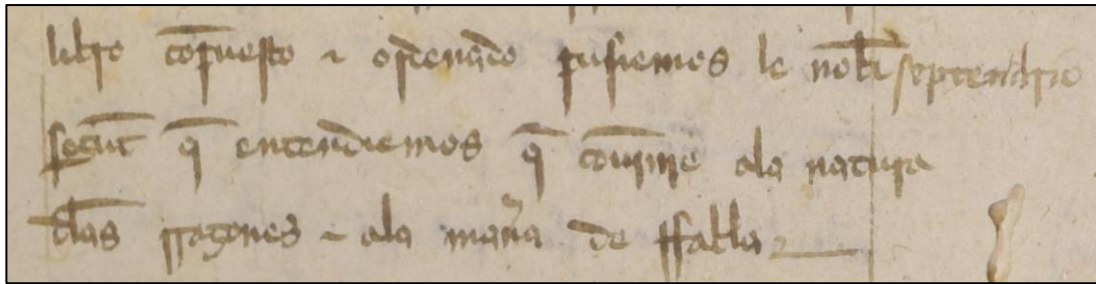 libro conpuesto ⁊ ordenado pusiemos le nonbr̄ septenario
segunt q̄ entendiemos q̄ conuiene ala natura
dlas rrazones ⁊ ala man̄a de ffabla